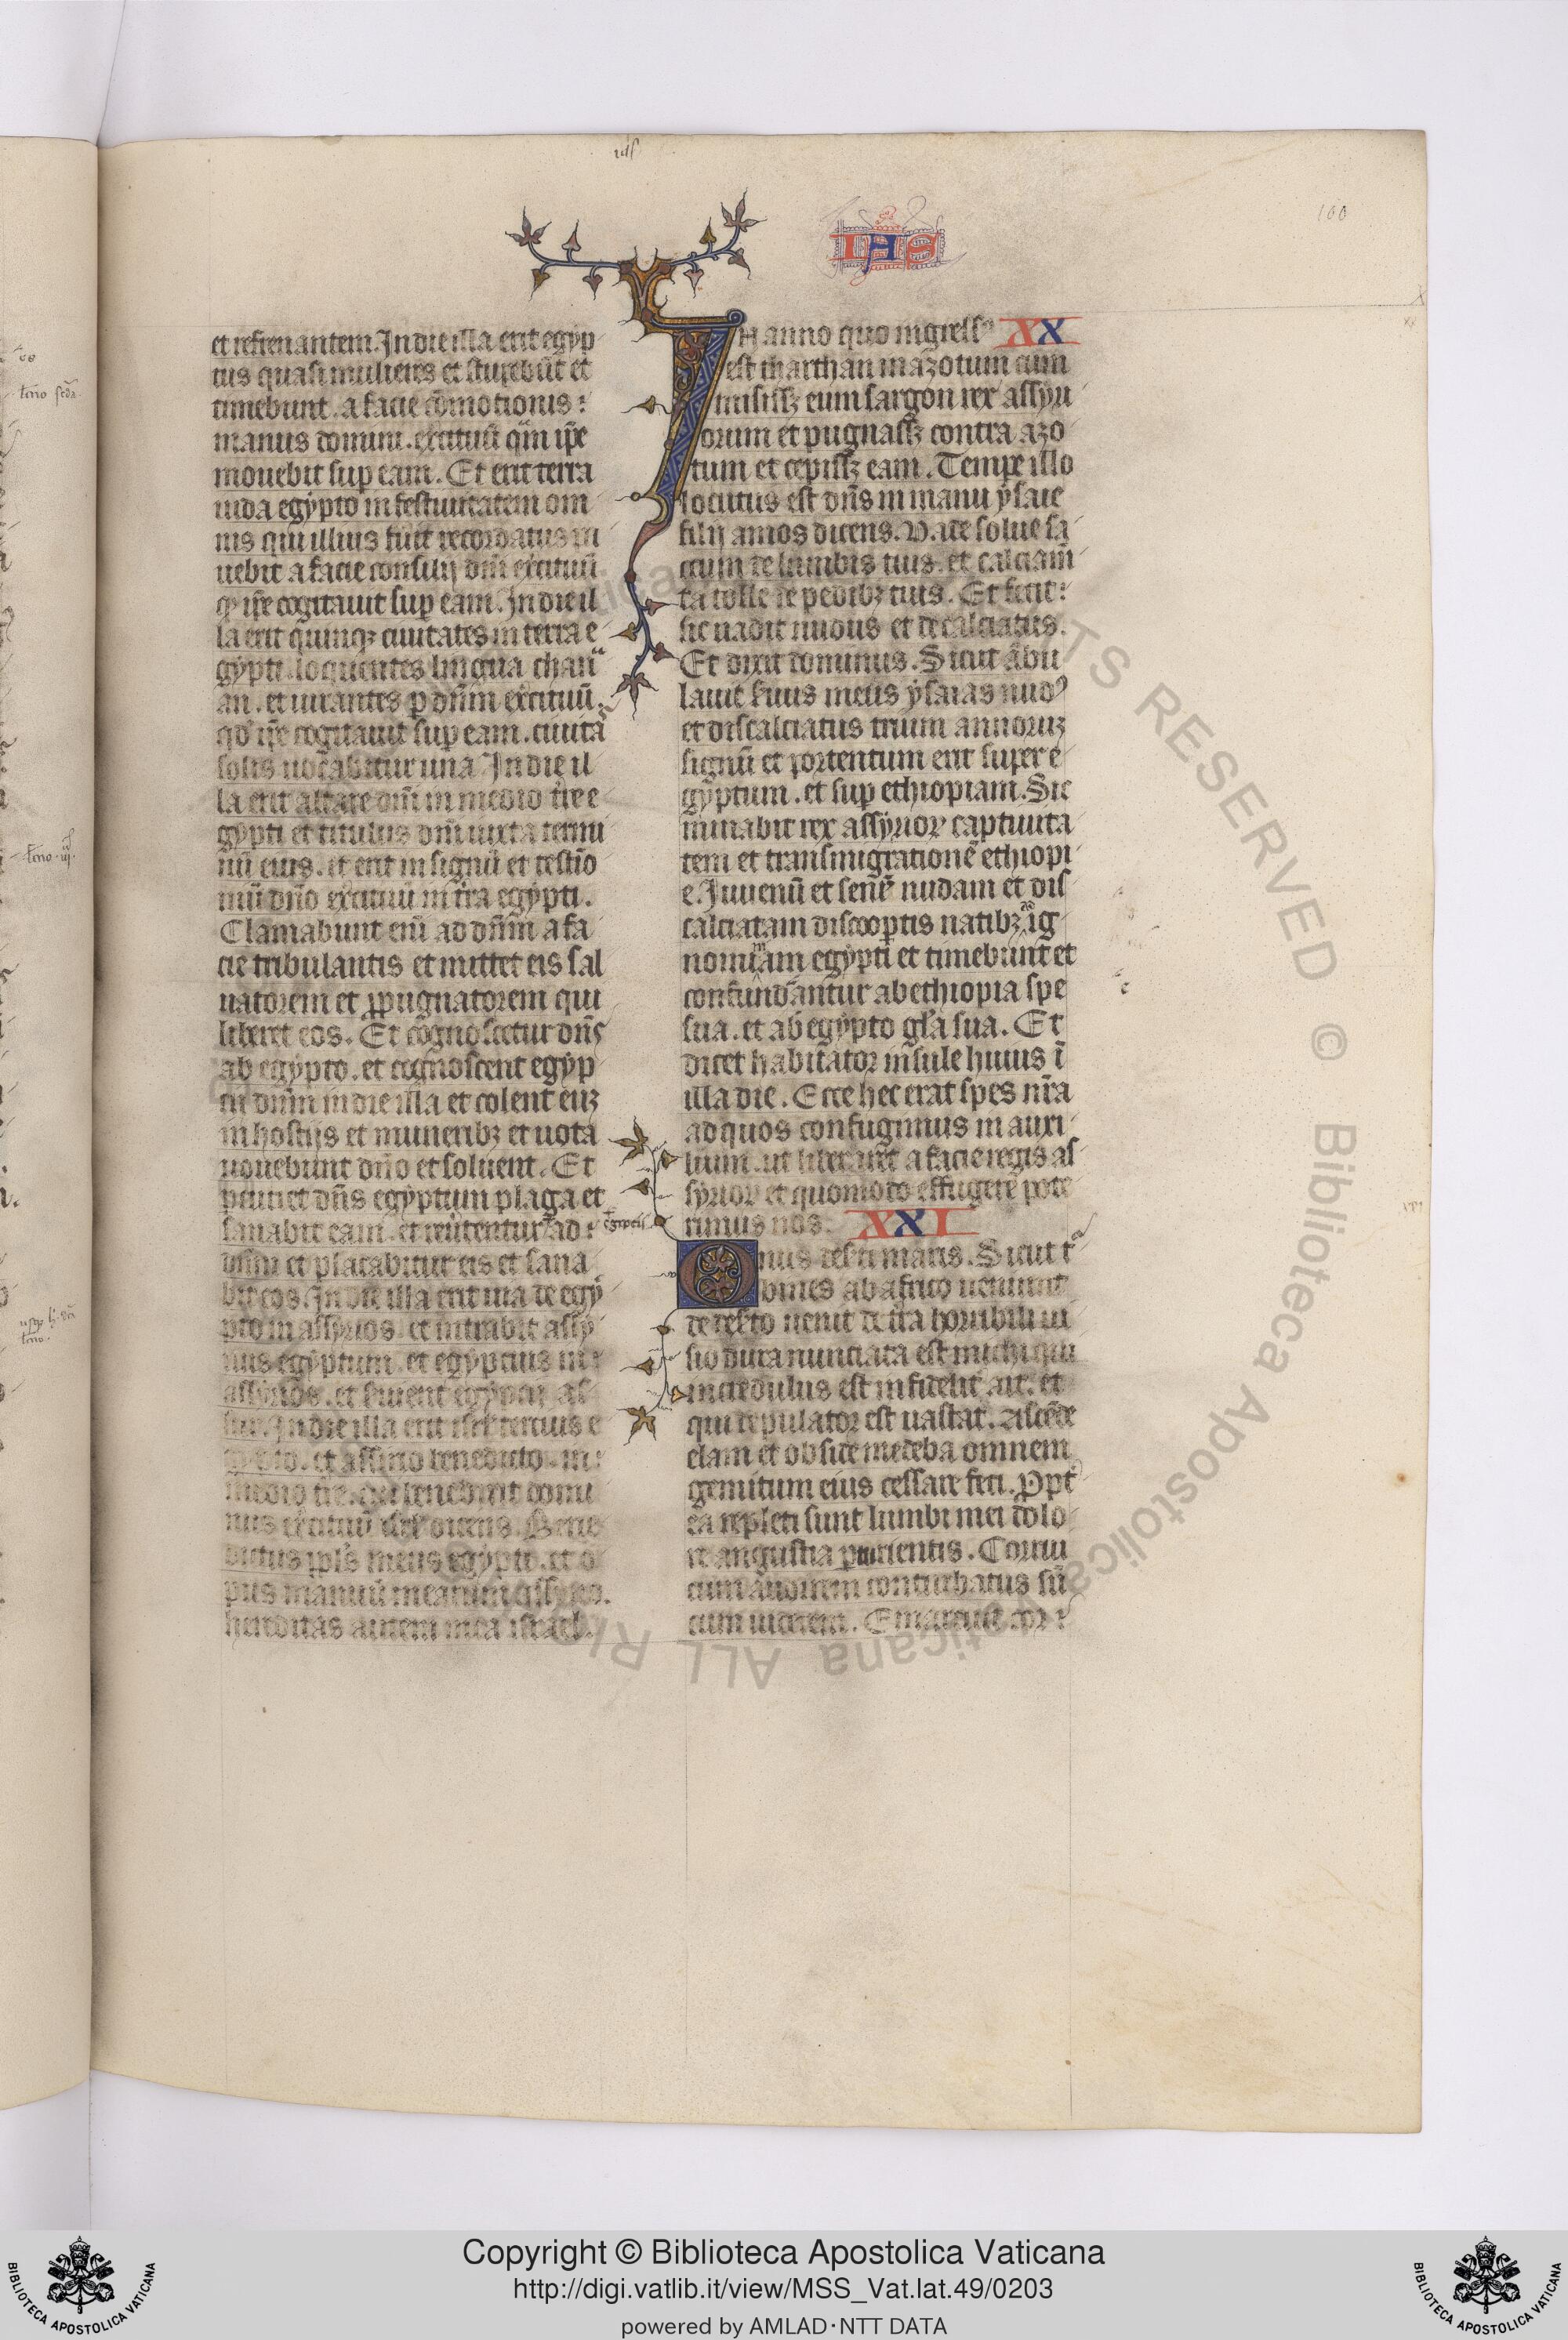 100
IAS
et refrenantem. In die illa erit egyp
tus quasi mulieres et stupebūt et
timebunt. a facie cōmotionis:
manus domini. exͣcituū qm̄ ip̄e
mouebit sup eam. Et erit terra
iuda egypto in festiuitatem om
nis qui illius fūit recordatus
uebit a facie consilij dn̄i exͣcituū
ip̄e cogitauit sup eam. In die il
la erit quinqꝫ ciuitates in terra e
gypti. loquentes lingua chan
an. et iurantes ꝑ dn̄m exͣcituū.
qd̓ ip̄e cogitauit sup eam. ciuita
solis uocabitur una. In die il
la erit altare dn̄i in medio tr̄e e
gypti et titulus dn̄i iuxta termi
nū eius. et erit in signū et testīo
mū dn̄o exͣcituū in tr̄a egypti.
Clamabunt enī ad dn̄m a fa
cie tribulantis et mittet eis sal
uatorem et ꝓpugnatorem qui
liberet eos. Et cognoscetur dn̄s
ab egypto. et cognoscent egyp
tij dn̄m in die illa et colent euꝫ
in hostijs et muneribꝫ et uota
uouebunt dn̄o et soluent. Et
percutiet dn̄s egyptum plaga et
sanabit eam. et reūtentur ad:
dn̄m et placabitur eis et sana
bit eos. In die illa erit uia de egy
pto in assyrios. et intrabit assy
rius egyptum. et egyptius in:
assyrios. et seruient egyptij as
sur. In die illa erit isrl̓ tercius e
gypto. et assirio benedictio. in:
medio tr̄e. cui benedixit domi
nus exͣcituū dicens. Bene
dictus ppl̓s meus egypti. et o
pus manuū mearum assyrio.
hereditas autem mea israel.
XX
N anno quo ingress᾽
est tharthan in azotum cum
misissꝫ eum sargon rex assyri
orum et pugnassꝫ contra azo
tum et cepissꝫ eam. Tempe illo
locutus est dn̄s in manu ysaie
filij amos dicens. Vade solue sa
ccum de lumbis tuis. et calciam̄
ta tolle de pedibꝫ tuis. Et fecit:
sic uadit nudus et decalciatus.
Et dixit dominus. Sicut ābu
lauit suus meus ysaias nud᾽
et discalciatus trium annoruꝫ
signū et portentum erit super e
gyptum. et sup ethiopiam. Sic
minabit rex assyrioꝝ captiuita
tem et transmigrationē ethiopi
e. Iuuenū et senū nudam et dis
calciatam discoopertis natibꝫ ig
nomiam egypti et timebunt et
confundantur ab ethiopia spe
sua. et ab egypto gl̓a sua. Et
dicet habitator insule huius ī
illa die. Ecce hec erat spes nr̄a
ad quos confugimus in auxi
lium. ut liberarēt a facie regis as
syrioꝝ et quomodo effugere pote
rimus nos.
XXI
Onus deserti maris. Sicut t
bines ab africo ueniunt
de deserto uenit de tr̄a horribili ui
sio dura nunciata est michi qui
incredulus est infidelit̓ ait. et
qui depulator est uastat. Ascēde
elam et obside medeba omnem
gemitum eius cessare feci. Ꝓpt̓
ea repleti sunt lumbi mei dolo
re angustia parturientis. Corrui
cum audirem conturbatus sū
cum uiderem. Emarcuit cor:
Copyright © Biblioteca Apostolica Vaticana
http://digi.vatlib.it/view/MSS_Vat.lat.49/0203
powered by AMLAD·NTT DATA